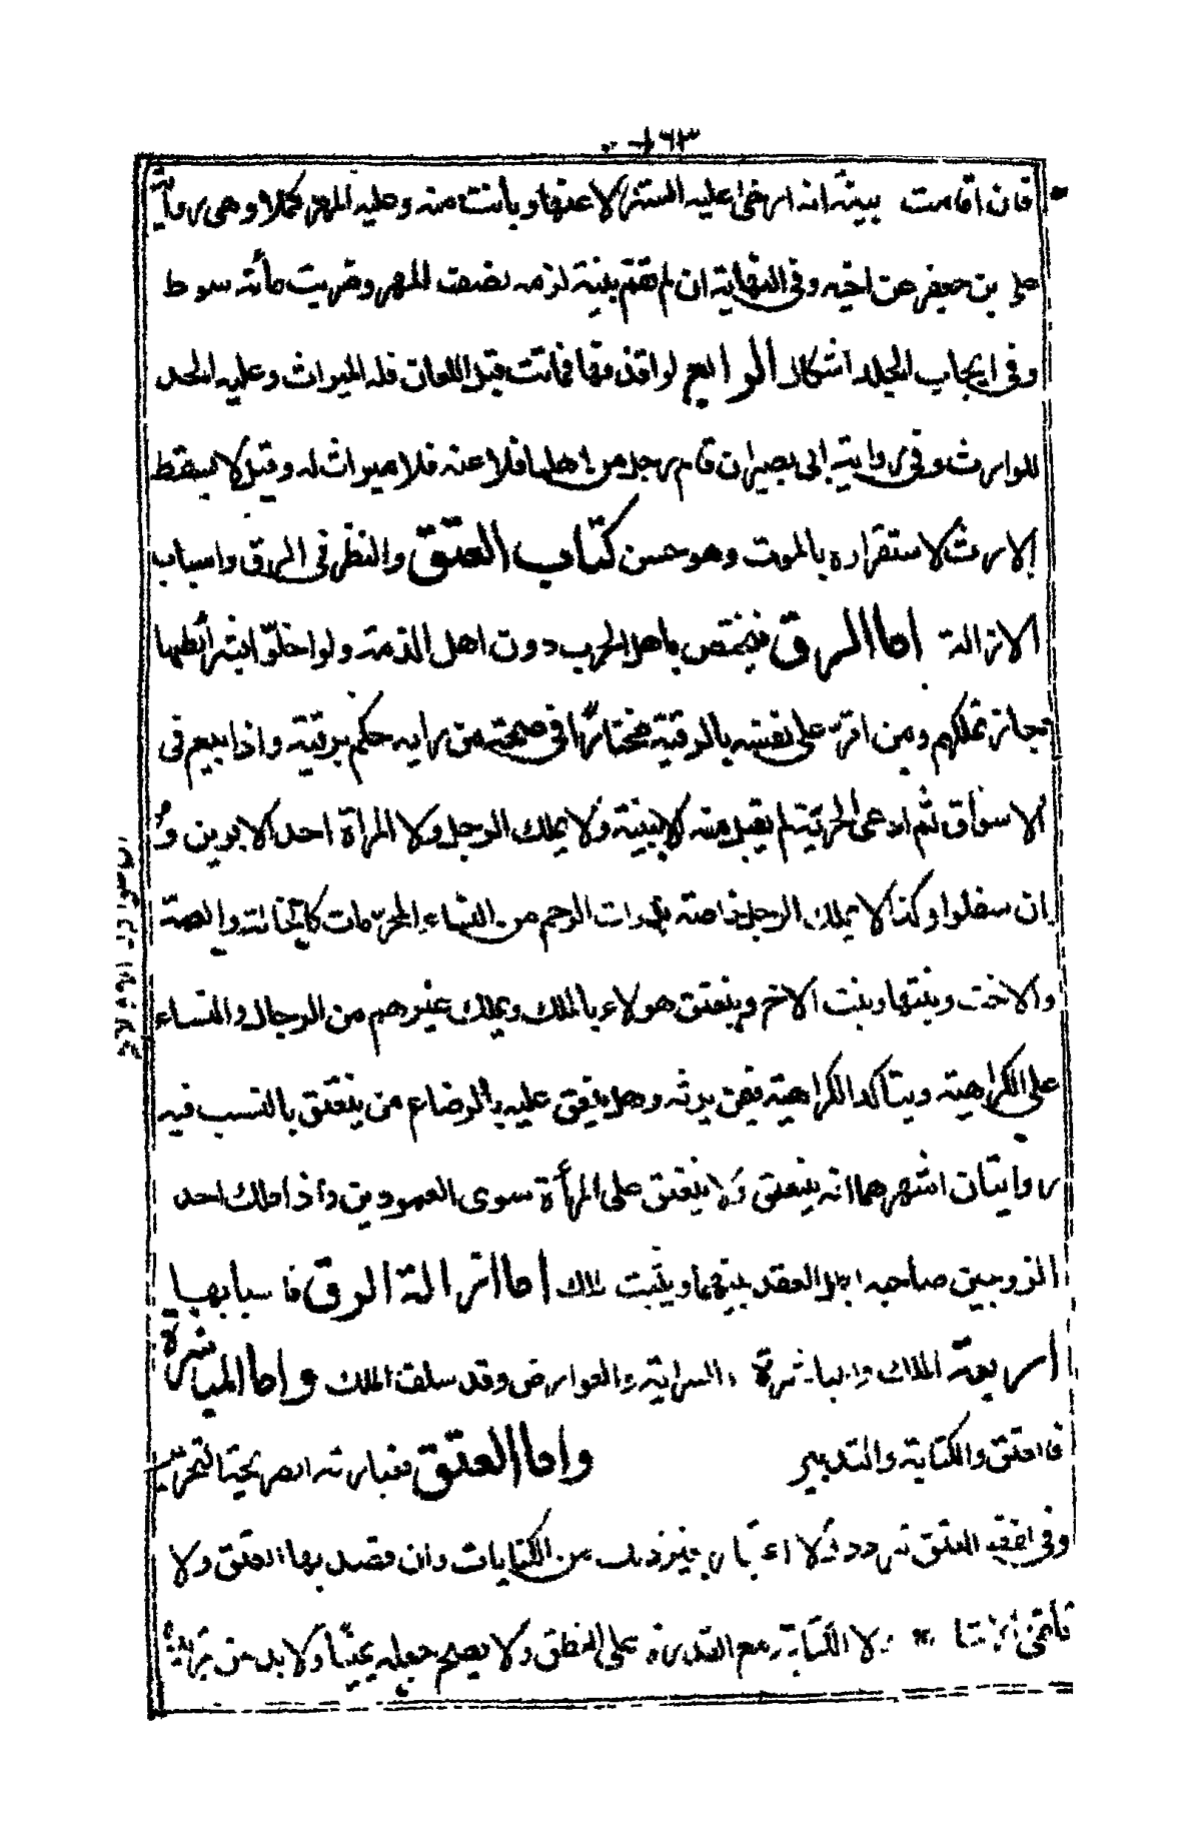 ١٦٣
فان اقامت بينة انه ارخى عليه الستر لاعنها وبانت منه وعليه المهر كملا وهى رواية
على بن جعفر عن اخيه وفى النهاية ان لم تقم بينة لزمه نصف المهر وضربت مائة سوط
وفى ايجاب الجلد اشكال الرابع لو اقذفها فماتت قبل اللعان فله الميراث وعليه الحد
للوارث وفى رواية ابى بصير ان قام رجل من اهلها فلاعنه فلا ميراث له وقيل لا يسقط
الارث لاستقراره بالموت وهو حسن كتاب العتق والنظر فى الرق واسباب
الازالة اما الرق فيختص باهل الحرب دون اهل الذمة ولو اخلوا بشرائطها
جاز تملكهم ومن اقر على نفسه بالرقية مختارا فى صحة من رايه حكم برقيته واذا بيع فى
الاسواق ثم ادعى الحرية لم يقبل منه الا ببينة ولا يملك الرجل ولا المرأة احد الابوين و
ان سفلوا وكذا لا يملك الرجل خاصة ذوات الرحم من النساء المحرمات كالخالة والعمة
والاخت وبنتها وبنت الاخ وينعتق هولاء بالملك ويملك غيرهم من الرجال والنساء
على الكراهية ويتاكد الكراهية فيمن يرثه وهل ينعتق عليه بالرضاع من ينعتق بالنسب فيه
روايتان اشهرهما انه ينعتق ولا ينعتق على المرأة سوى العمودين واذا ملك احد
الزوجين صاحبه بطل العقد بينهما ويثبت الملك اما ازالة الرق فاسبابها
اربعة الملك والمباشرة والسراية والعوارض وقد سلف الملك واما المباشرة
فالعتق والكتابة والتدبير واما العتق فعبارته الصريحة التحرير
وفى لفظ العتق تردد ولا اعتبار بغير ذلك من الكنايات وان قصد بها العتق ولا
تكفى الاشارة ولا الكتابة مع القدرة على النطق ولا يصح جعله يمينا ولا بد من تجريده